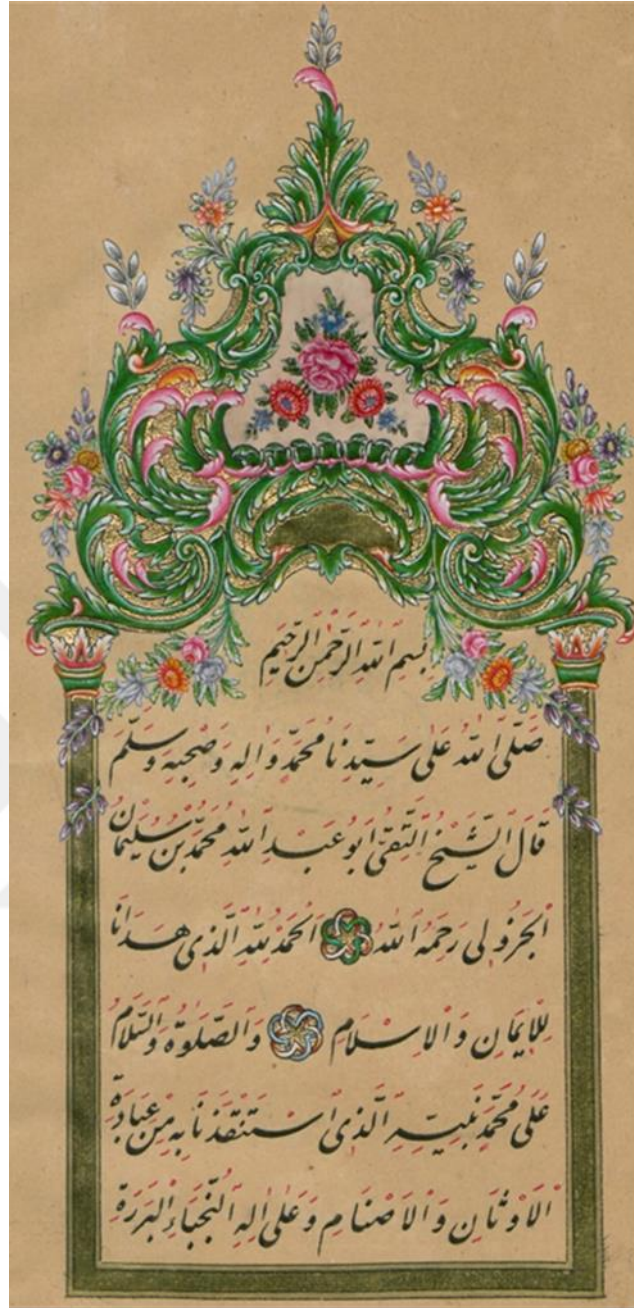 بِسْمِ اللهِ الرَّحْمٰنِ الرَّحِيْمِ
صَلَّى اللهُ عَلٰى سَيِّدِنَا مُحَمَّدٍ وَاٰلِهِ وَصَحْبِهِ وَسَلَّمَ
قَالَ الشَّيْخُ التَّقِىُّ اَبُو عَبْدِ اللهِ مُحَمَّدُ بْنُ سُلَيْمَانَ
الْجَزُولِى رَحِمَهُ اللهُ اَلْحَمْدُ لِلّٰهِ الَّذِى هَدَانَا
لِلْاِيمَانِ وَالْاِسْلَامِ وَالصَّلٰوةُ وَالسَّلَامُ
عَلٰى مُحَمَّدٍ نَبِيِّهِ الَّذِى اسْتَنْقَذَنَا بِهِ مِنْ عِبَادَةِ
الْاَوْثَانِ وَالْاَصْنَامِ وَعَلٰى اٰلِهِ النُّجَبَاءِ الْبَرَرَةِ